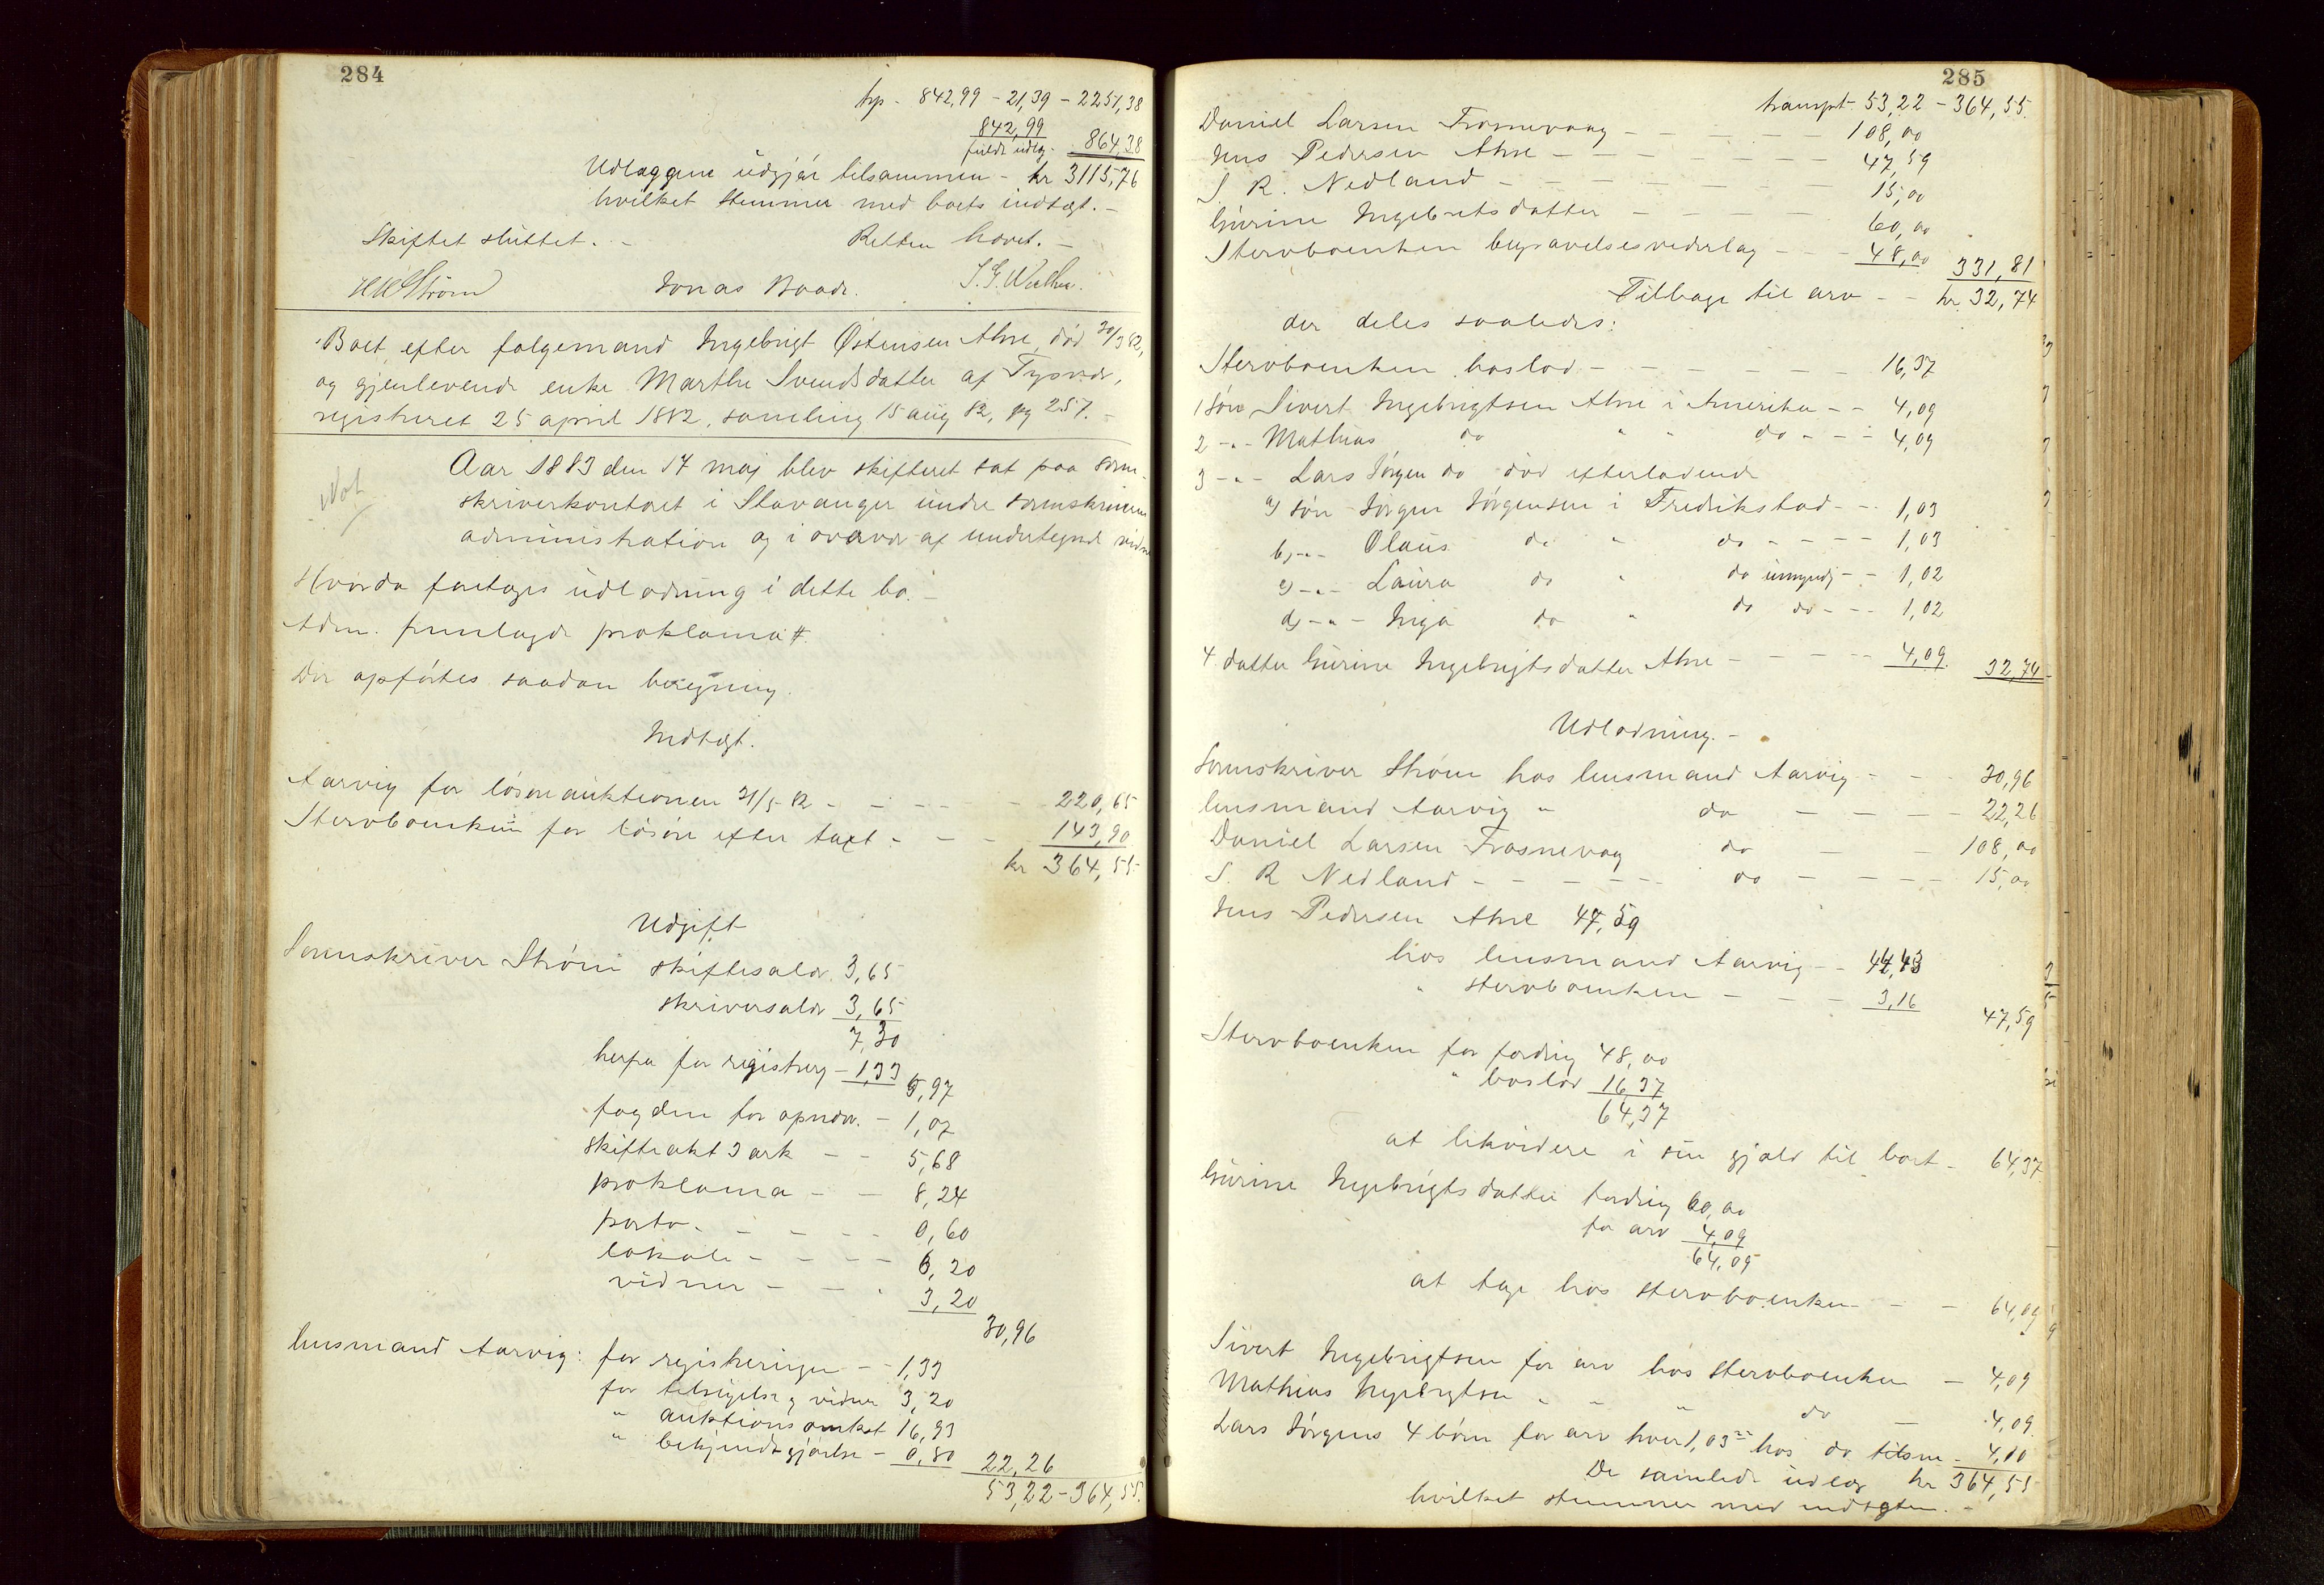 284
trp - 842,99 - 21,39 - 2251,38
842,99
fulde udlæg - 864,38
Udlæggene udgjør tilsammen - kr 3115,76
hvilket stemmer med boets indtægt. -
Skiftet sluttet. - Retten hævet. -
Jonas Boade.
Boet efter følgemand Ingebrigt Østensen Ahre, død 30/3 82,
og gjenlevende enke Marthe Svendsdatter af Tysvær,
registreret 25 april 1882, samling 15 aug 82, pg 257. -
Not
Aar 1883 den 17 maj blev skifteret sat paa soren-
skriverkontoret i Stavanger under sorenskriverens
administration og i overvær af undertegnede vidner
Hvorda foretoges udlodning i dette bo. -
Adm. fremlagde proklama #.
Der opførtes saadan beregning.
Indtægt.
Aarvig for løsøreauktionen 31/5 - 82 - - - - 220,65
Stervboenken for løsøre efter taxt - - - 143,90
kr 364,55
Udgift
Sorenskriver Strøm skiftesalær 3,65
skriversalær 3,65
7,30
herfra for registrerg - 1,33 5,97
fogden for opnævn. - 1,07
skifteakt 3 ark - - 5,68
proklama - - 8,24
porto - - - - - 0,60
lokale - - - - 6,20
vidner - - - 3,20
30,96
lensmand Aarvig: for registreringen - - 1,33
for tilsigelse og vidner 3,20
" auktionsomkost 16,93
" bekjendtgjørelse - 0,80 22,26
53,22 - 364,55.
285
transpt. 53,22 - 364,55.
Daniel Larsen Frosnevaag - - - - - - 108,00
Jens Pedersen Ahre - - - - - - - 47,59
S. R. Nedland - - - - - - - 15,00
Gurine Ingebretsdatter - - - - - 60,00
Stervboenken begravelsesvederlag - - - 48,00 331,81
Tilbage til arv - - kr. 32,74
der deles saaledes:
Stervboenken boslod - - - - - - - 16,37
1 søn Sivert Ingebrigtsen Ahre i Amerika - - 4,09
2 -"- Mathias do " " do - - - 4,09
3 -"- Lars Jørgen do død efterladende
a) søn Jørgen Jørgensen i Fredrikstad - - 1,03
b) -"- Olaus do " do - - - - 1,03
c) -"- Laura do " do umyndg - - 1,02
d) -"- Inga do " do do - - - 1,02
4 datter Gurine Ingebrigtsdatter Ahre - - - - - 4,09. 32,74 -
Udlodning. -
Sorenskriver Strøm hos lensmand Aarvig - - - 30,96
lensmand Aarvig " do - - - - 22,26
Daniel Larsen Frosnevag do - - 108,00
S. R Nedland - - - - - - do - - - - 15,00
Jens Pedersen Ahre 47,59
hos lensmand Aarvig - - 44,43
" stervboenken - - - 3,16
47,59
Stervboenken for fordrig 48,00
" boslod 16,37
64,37
at likvidere i sin gjæld til boet - 64,37
Gurine Ingebrigtsdatter fordrig 60,00
for arv 4,09
64,09
at tage hos stervboenken - - 64,09
Sivert Ingebrigtsen for arv hos stervboenken - 4,09
Mathias Ingebrigtsen " " " do - 4,09.
Lars Jørgens 4 børn for arv hver 1,03 hos do tilsm - 4,10
De samlede udlæg kr 364,55
hvilket stemmer med indtægten. -